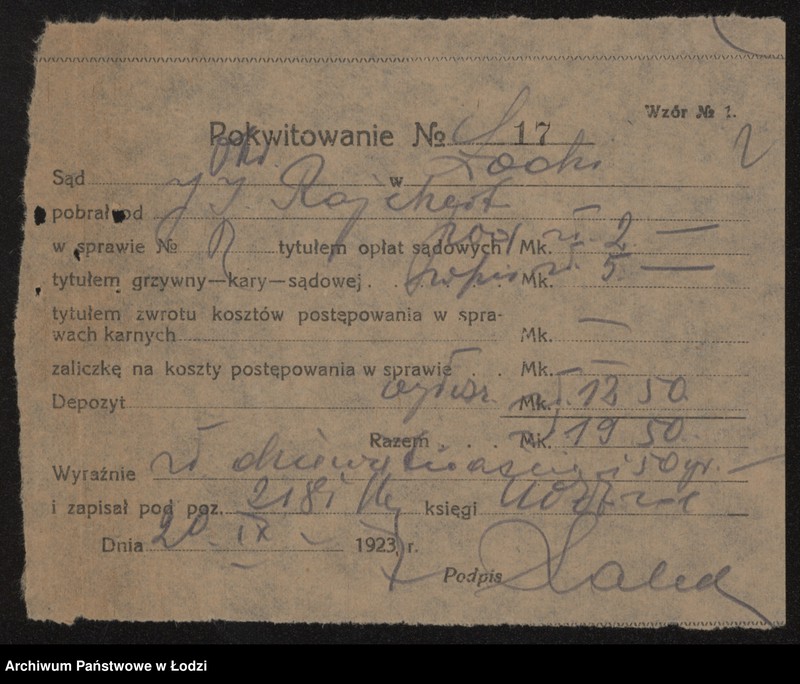 Wzór № 1.
Pokwitowanie № 17
Sąd Okr. w Łodzi
pobrał od J J. Rajchert
w sprawie № tytułem opłat sądowych Mk. zł. 2 —
tytułem grzywny—kary—sądowej . . . . . Mk. zł. 5. —
tytułem zwrotu kosztów postępowania w spra-
wach karnych Mk. —
zaliczkę na koszty postępowania w sprawie . . Mk. —
Depozyt Mk. zł. 12 50.
Razem . . . Mk. zł 19 50.
Wyraźnie zł dziewiętnaście i 50 gr. —
i zapisał pod poz. 2181 księgi
Dnia 20 IX 1923 r.
Podpis
Archiwum Państwowe w Łodzi